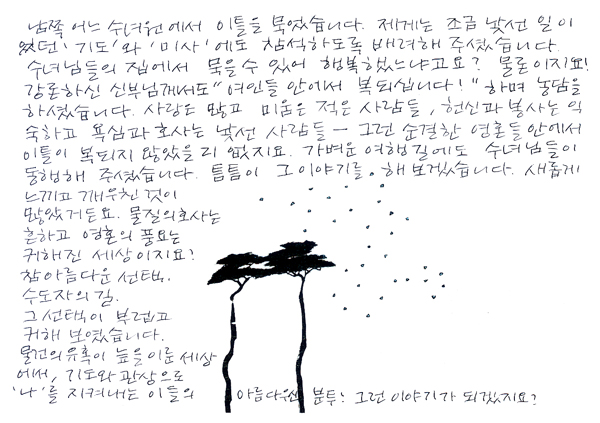 남쪽 어느 수녀원에서 이틀을 묵었습니다. 제게는 조금 낯선 일이
었던 '기도'와 '미사'에도 참석하도록 배려해 주셨습니다.
수녀님들의 집에서 묵을 수 있어 행복했느냐고요? 물론이지요!
강론하신 신부님께서도 "여인들 안에서 복되십니다!" 하며 농담을
하셨습니다. 사랑은 많고 미움은 적은 사람들, 헌신과 봉사는 익
숙하고 욕심과 호사는 낯선 사람들 — 그런 순결한 영혼들 안에서
이틀이 복되지 않았을 리 없지요. 가벼운 여행길에도 수녀님들이
동행해 주셨습니다. 틈틈이 그 이야기를 해 보겠습니다. 새롭게
느끼고 깨우친 것이
많았거든요. 물질의 호사는
흔하고 영혼의 풍요는
귀해진 세상이지요?
참 아름다운 선택.
수도자의 길.
그 선택이 부럽고
귀해 보였습니다.
물건의 유혹이 늪을 이룬 세상
에서, 기도와 관상으로
'나'를 지켜내는 이들의 아름다운 분투! 그런 이야기가 되겠지요?